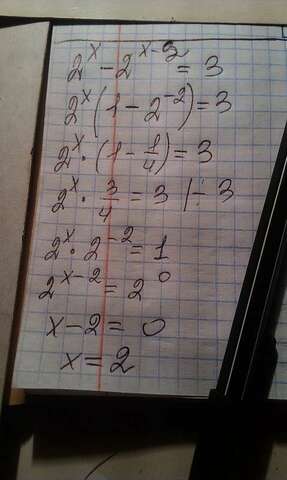 2^x - 2^(x-2) = 3
2^x (1 - 2^(-2)) = 3
2^x · (1 - 1/4) = 3
2^x · 3/4 = 3 | ÷ 3
2^x · 2^(-2) = 1
2^(x-2) = 2^0
x - 2 = 0
x = 2